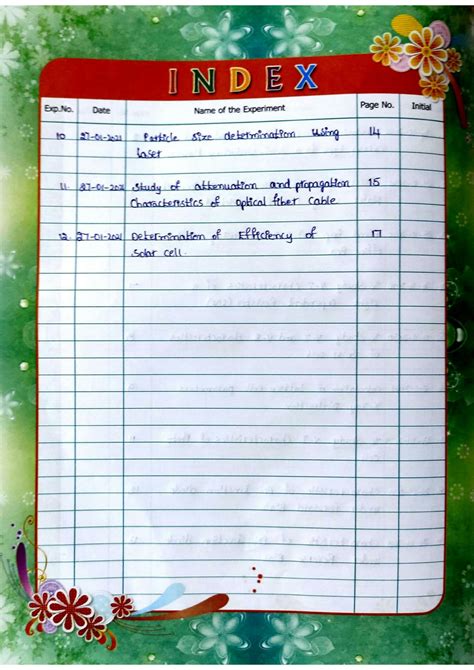 INDEX
Exp.No. Date Name of the Experiment Page No. Initial
10 27-01-2021 Particle Size determination Using 14
laser
11 27-01-2021 Study of attenuation and propagation 15
Characteristics of optical fiber Cable.
12 27-01-2021 Determination of Efficiency of 17
Solar cell.